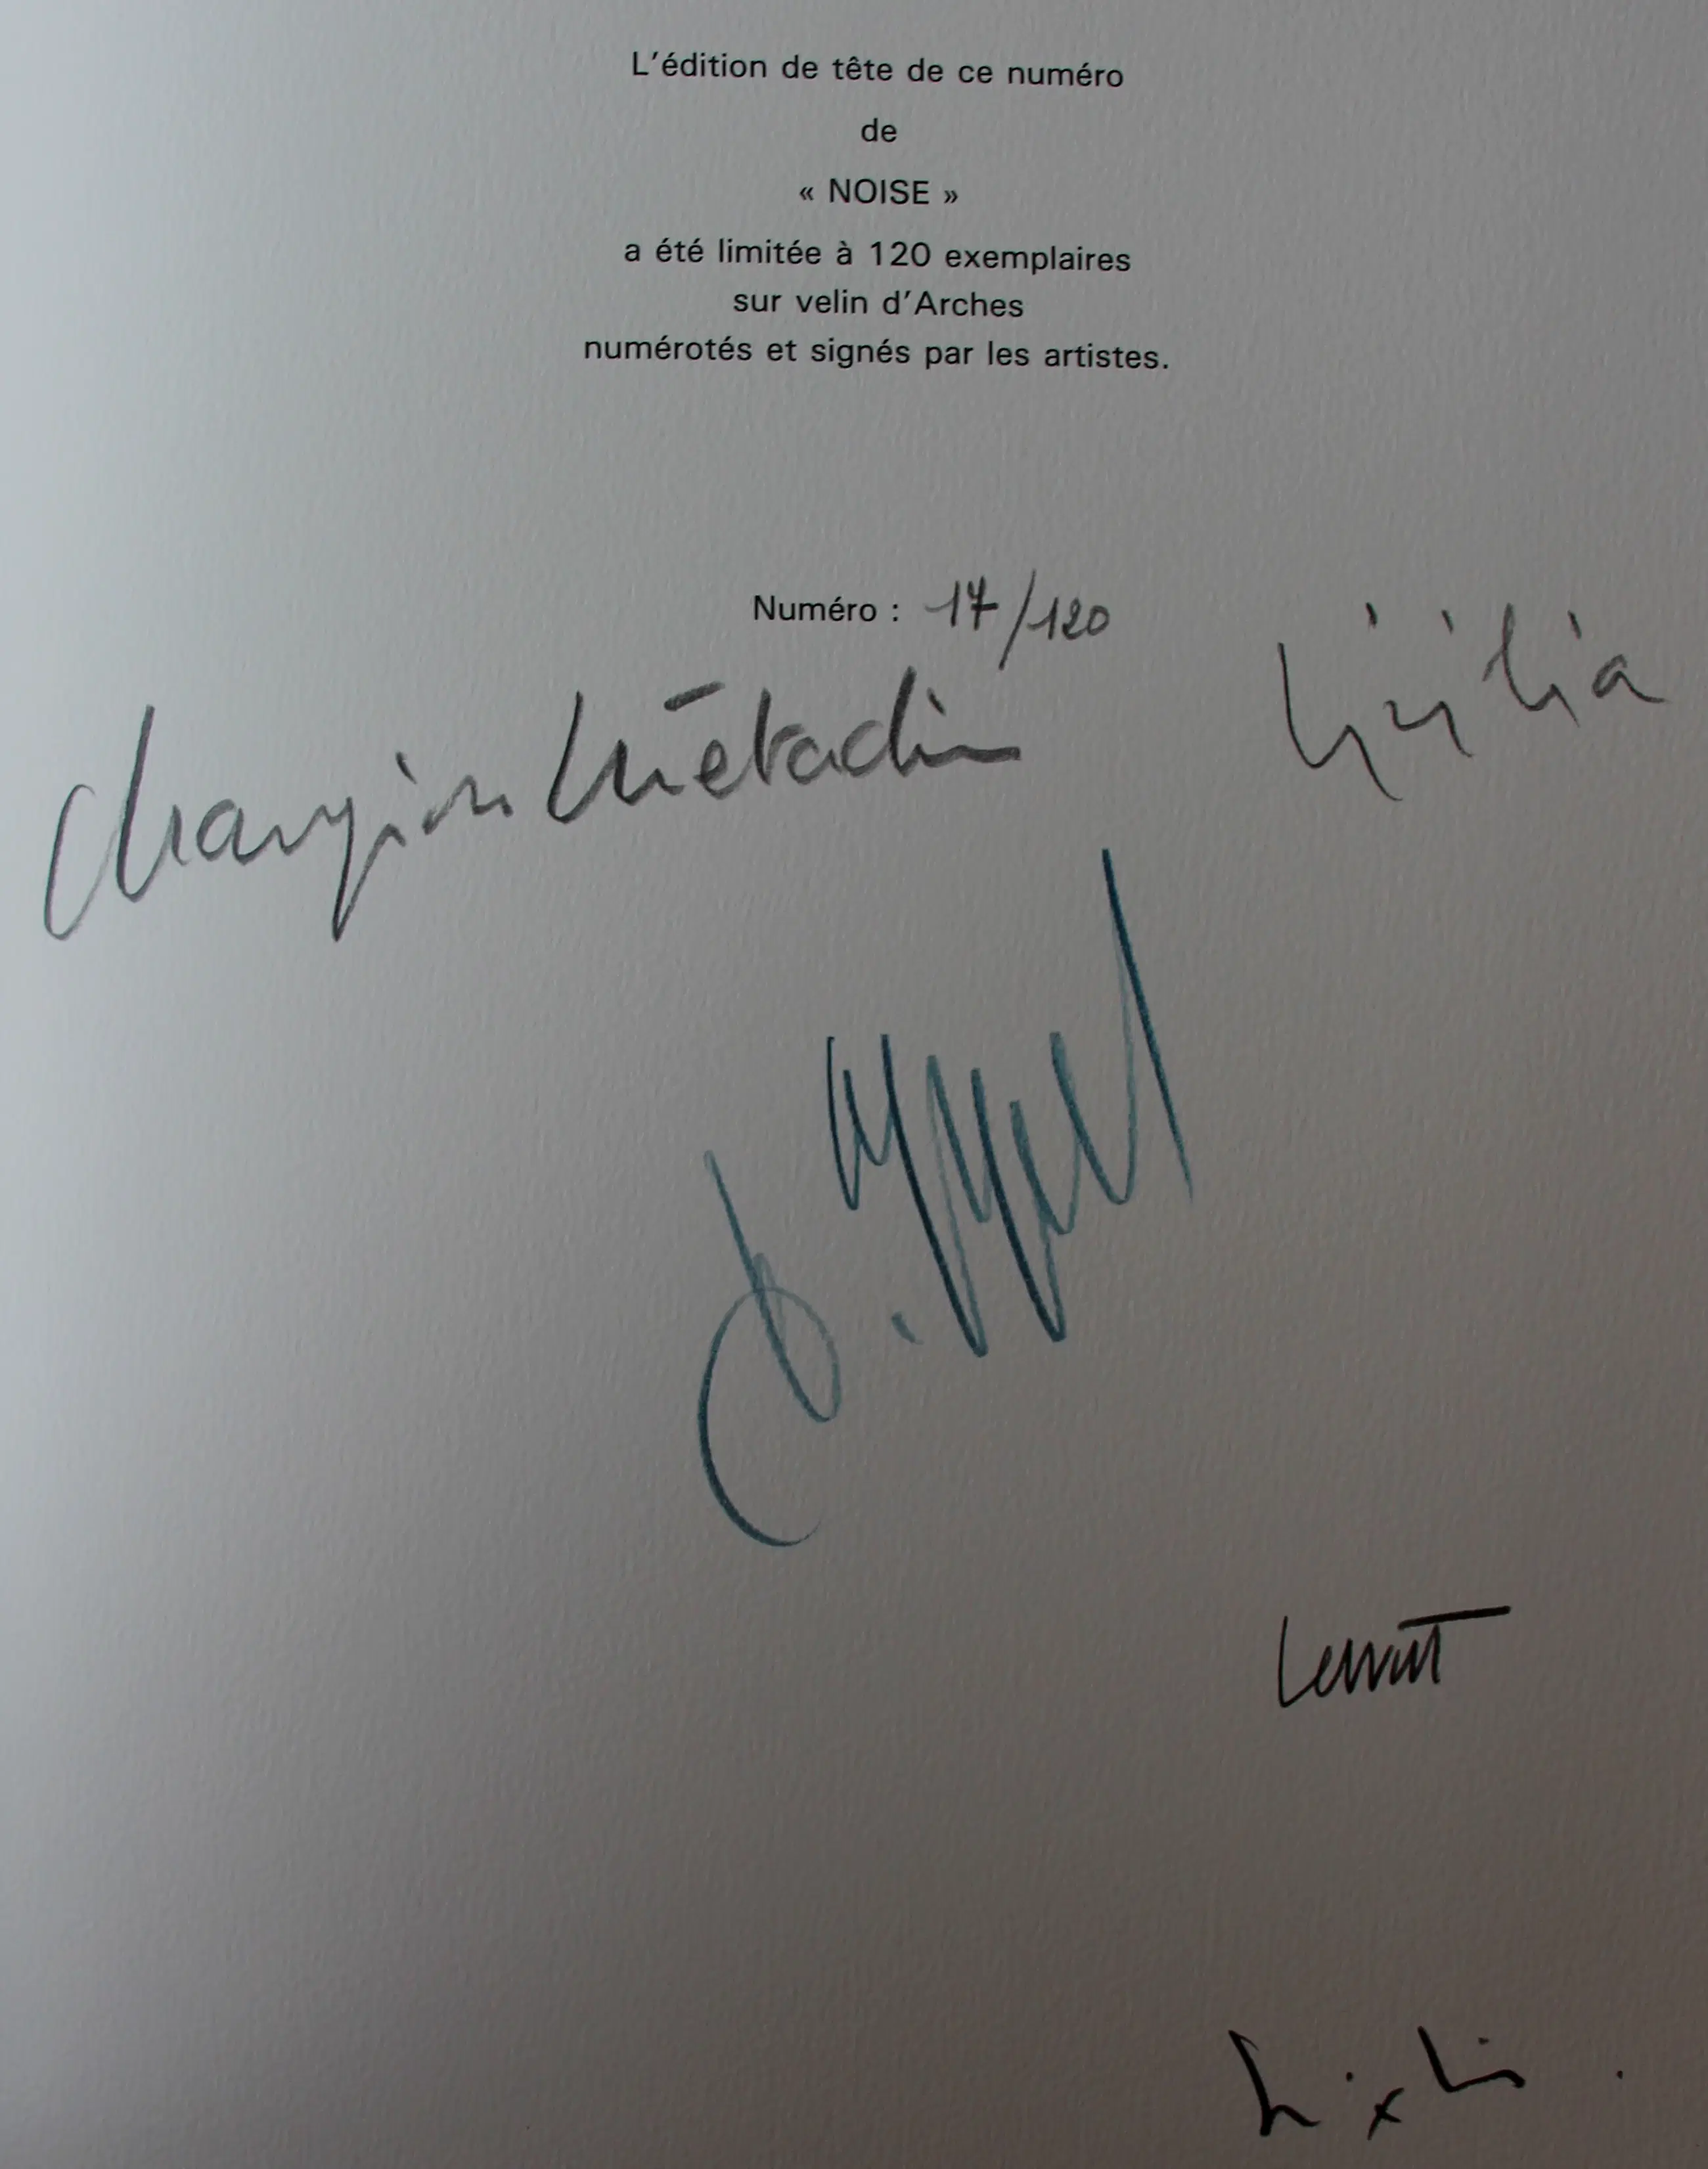 L'édition de tête de ce numéro
de
« NOISE »
a été limitée à 120 exemplaires
sur velin d'Arches
numérotés et signés par les artistes.
Numéro : 17/120
Champion Métadier